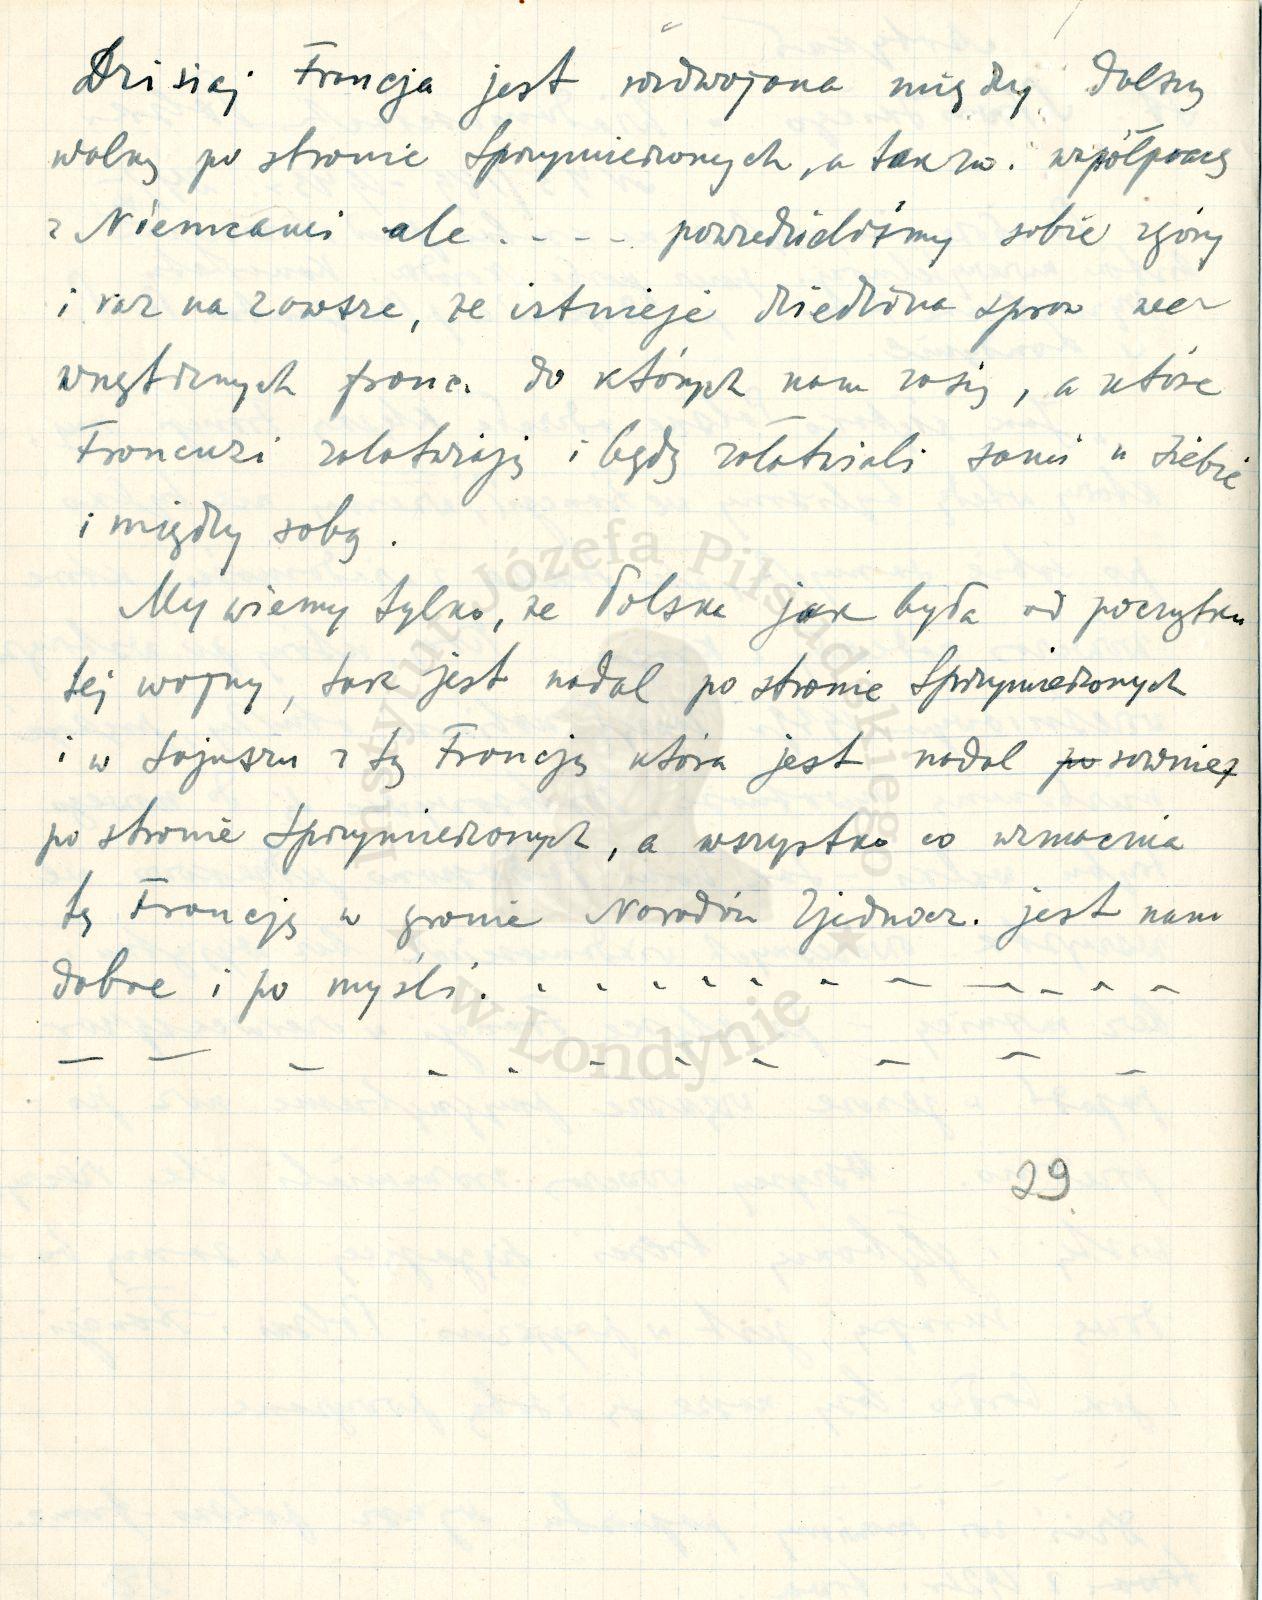 Dzisiaj Francja jest rozdwojona między dalszą
walką po stronie Sprzymierzonych, a tak zw. współpracą
z Niemcami ale . - - - powiedzieliśmy sobie zgóry
i raz na zawsze, że istnieje dziedzina spraw we-
wnętrznych franc. do których nam zasię, a które
Francuzi załatwiają i będą załatwiali sami u siebie
i między sobą.
My wiemy tylko, że Polska jak była od początku
tej wojny, tak jest nadal po stronie Sprzymierzonych
i w sojuszu z tą Francją która jest nadal po również
po stronie Sprzymierzonych, a wszystko co wzmacnia
tę Francję w gronie Narodów Zjednocz. jest nam
dobre i po myśli. - - - - - - - - - - -
- - - - - - - - - - -
29
Instytut Józefa Piłsudskiego
w Londynie